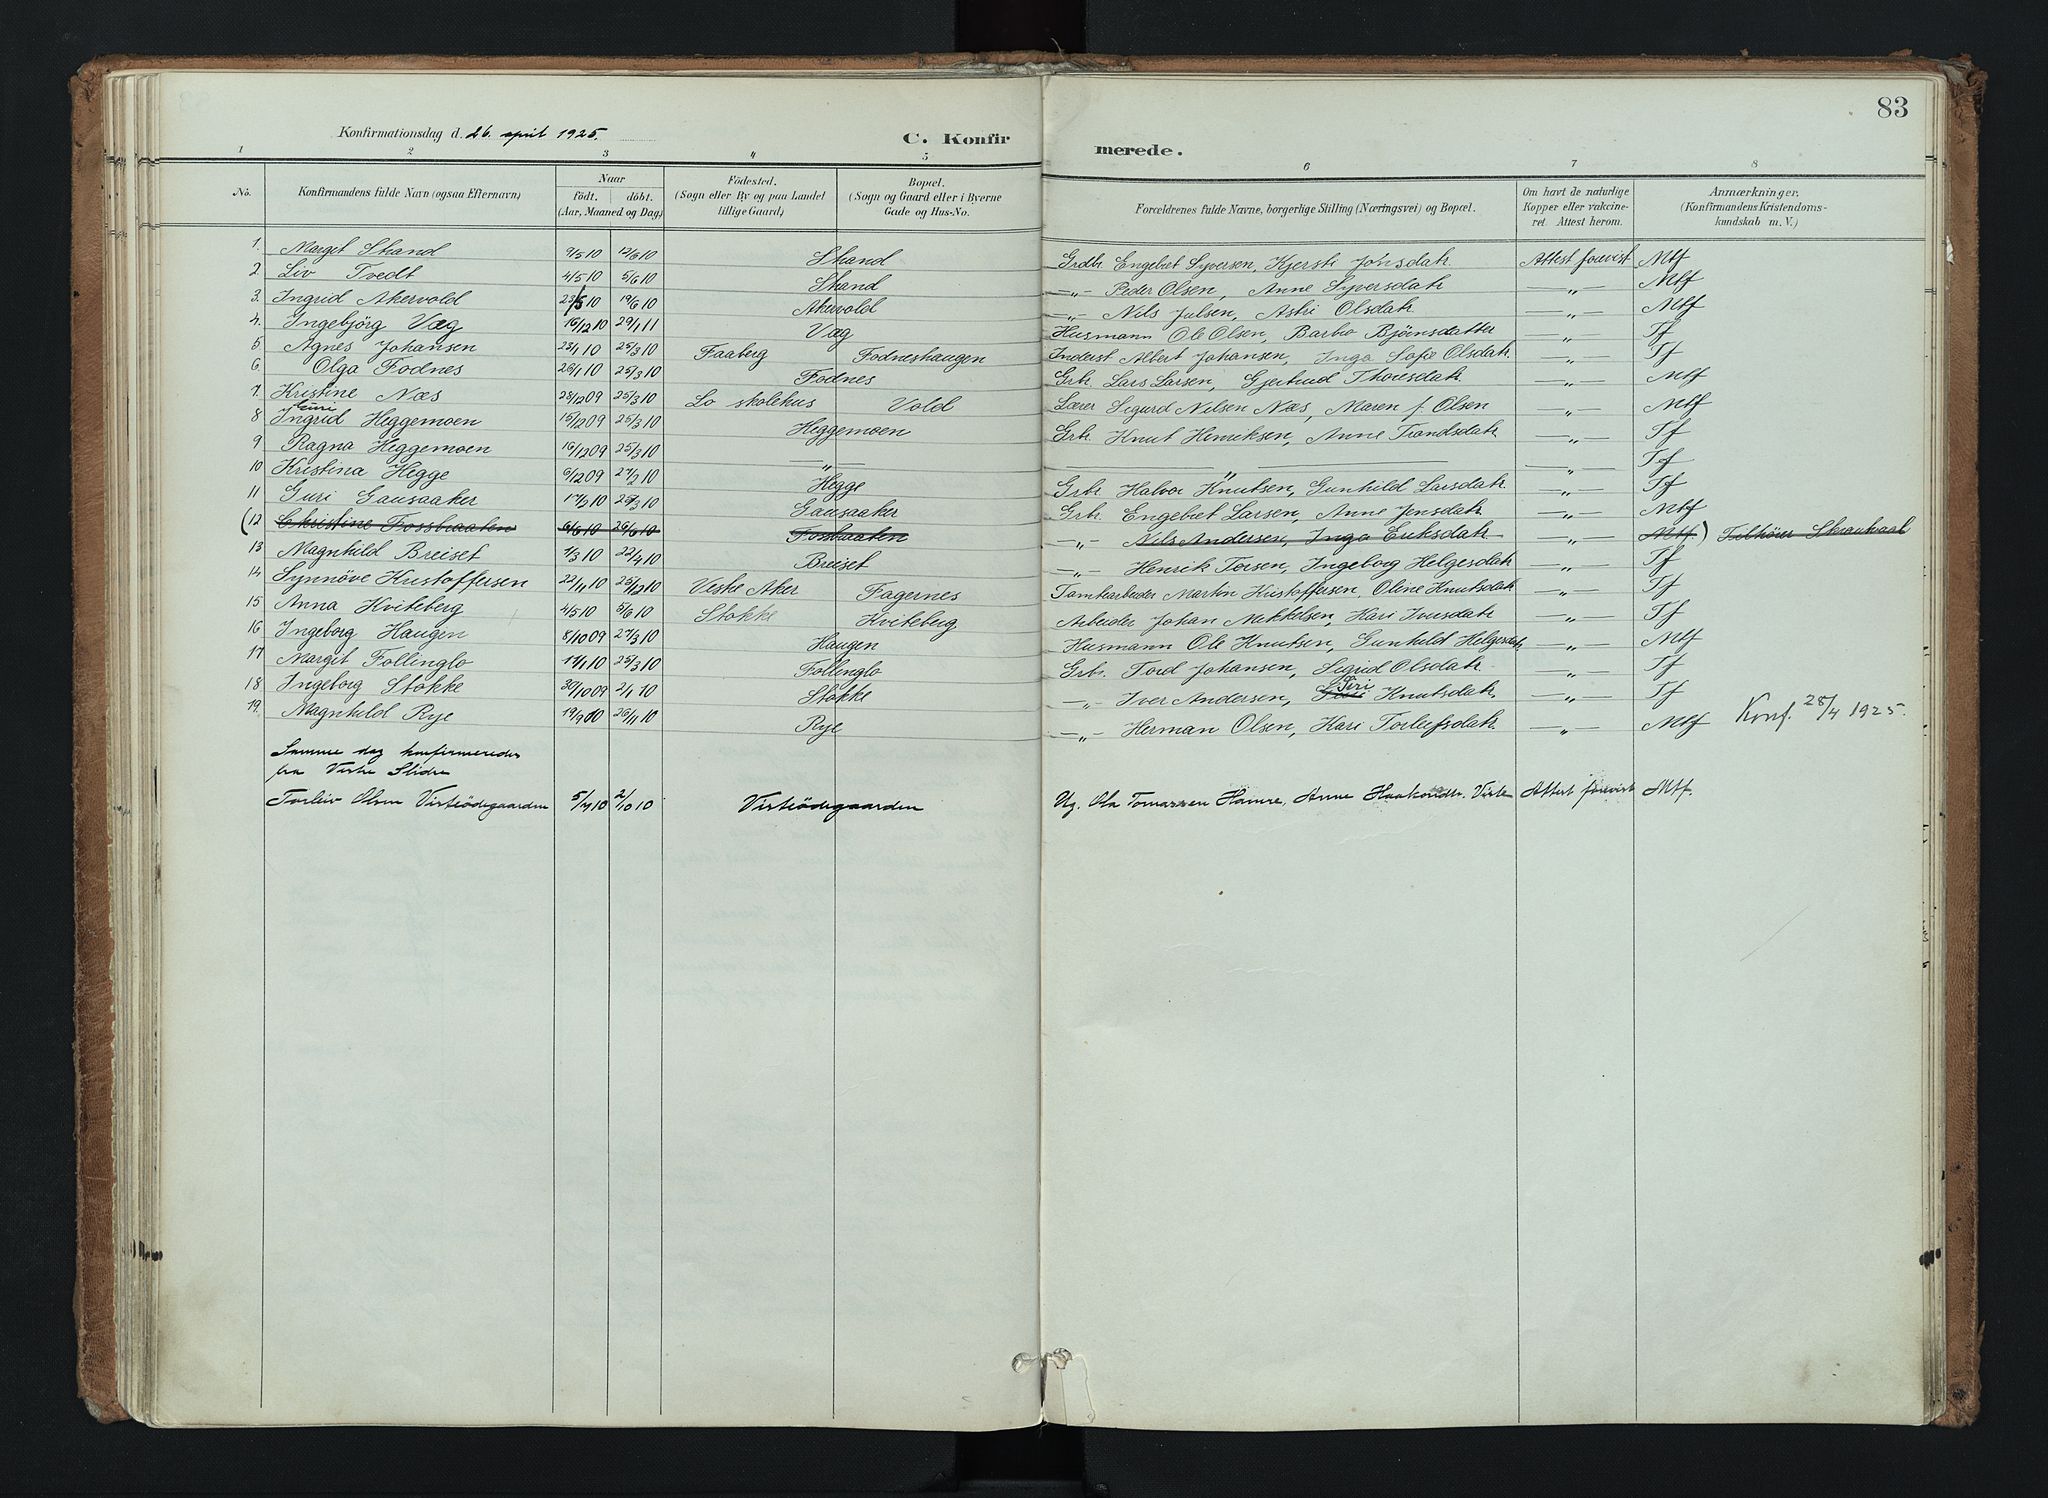 83
Konfirmationsdag d. 26. april 1925.
C. Konfirmerede.
1 2 3 4 5 6 7 8
No. Konfirmandens fulde Navn (ogsaa Efternavn) Naar födt. döbt. (Aar, Maaned og Dag) Födested. (Sogn eller By og paa Landet tillige Gaard) Bopæl. (Sogn og Gaard eller i Byerne Gade og Hus-No. Forældrenes fulde Navne, borgerlige Stilling (Næringsvei) og Bopæl. Om havt de naturlige Kopper eller vakcineret. Attest herom. Anmærkninger. (Konfirmandens Kristendomskundskab m. V.)
1. Marget Strand 9/5 10 12/6 10 Strand Grdbr. Engebret Syversen, Kjersti Jonsdatr. Attest forevist Mtf
2 Liv Tvedt 4/5 10 5/6 10 Strand —„— Peder Olsen, Anne Syversdatr —„— Mtf
3. Ingrid Akervold 23/5 10 19/6 10 Akervold —„— Nils Julsen, Astri Olsdatr. —„— Mtf
4. Ingebjörg Væg 16/12 10 29/1 11 Væg Husmann Ole Olsen, Barbo Bjørnsdatter —„— Tf
5 Agnes Johansen 23/1 10 25/3 10 Faaberg Fodneshaugen Inderst Albert Johansen, Inga Sofie Olsdatr. —„— Tf
6. Olga Fodnes 26/1 10 25/3 10 Fodnes Grbr. Lars Larsen, Gjertrud Thoresdatr. —„— Mtf
7. Kristine Næs 28/12 09 25/3 10 Lo skolehus Vold Lærer Sigurd Nilsen Næs, Maren f. Olsen —„— Mtf
8 Ingrid Heggemoen 15/12 09 25/3 10 Heggemoen Grbr. Knut Henriksen, Anne Trondsdatr. —„— Tf
9 Ragna Heggemoen 16/12 09 25/3 10 —„— —„— —„— Tf
10 Kristina Hegge 6/12 09 27/2 10 Hegge Grbr. Halvor Knutsen, Gunhild Larsdatr. —„— Tf
11 Guri Gausaaker 17/3 10 25/3 10 Gausaaker Grbr. Engebret Larsen, Anne Jonsdatr. —„— Mtf
(12 Christine Fossbraaten 6/6 10 26/6 10 Fossbraaten —„— Nils Andersen, Inga Eriksdatr —„— Mtf) Tilhører Skrautvaal
13 Magnhild Breiset 1/3 10 22/4 10 Breiset —„— Henrik Torsen, Ingeborg Helgesdatr —„— Tf
14 Synnöve Kristoffersen 22/11 10 25/12 10 Vestre Aker Fagernes Tomtearbeider Martin Kristoffersen, Oline Knutsdatr —„— Tf
15 Anna Kviteberg 4/5 10 5/6 10 Stokke Kviteberg Arbeider Johan Mikkelsen, Kari Iversdatr. —„— Tf
16 Ingeborg Haugen 8/10 09 27/3 10 Haugen Husmann Ole Knutsen, Gunhild Helgesdatr —„— Mtf
17 Marget Follinglo 17/1 10 25/3 10 Follinglo Grbr. Tord Johansen, Sigrid Olsdatr. —„— Tf
18 Ingeborg Stokke 30/10 09 2/1 10 Stokke —„— Iver Andersen, Siri Knutsdatr. —„— Tf
19. Magnhild Rye 19/9 10 26/11 10 Rye —„— Herman Olsen, Kari Torleifsdatr. —„— Mtf Konf. 28/4 1925.
Samme dag konfirmeredes
fra Vestre Slidre
Torleiv Olsen Visteödegaarden 5/7 10 2/10 10 Visteödegaarden Ug. Ola Tomassen Hamre, Anne Haakondtr. Viste Attest forevist Mtf.